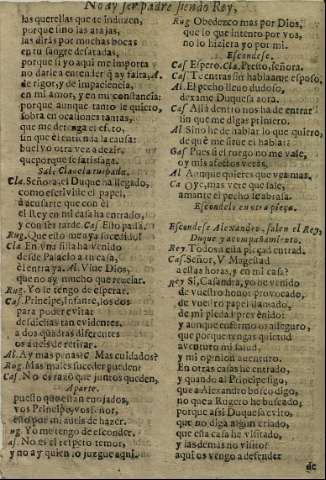 No ay ser padre siendo Rey,
las querellas que te induzen,
porque sino las atajas,
las dirás por muchas bocas
en tu sangre desatadas,
porque si yo aqui me importa
no darle a entender q̃ ay falta, A.
de rigor, y de impaciencia,
en mi amor, y en mi constancia:
porque aunque tanto le quiero,
sobra en ocasiones tantas,
que me detenga el efeto,
sin que esté en tu la causa:
buelvo otra vez a dezir,
que porque se satisfaga.
Sale Clavela turbada.
Cla. Señora, el Duque ha llegado,
como escriviste el papel,
à acusarte que con el
el Rey en mi casa ha entrado,
y con ser tarde. Cas. Esto passa.
Rug. Que esto me aya sucedido!
Cla. En una silla ha venido
desde Palacio a tu casa,
él entra ya. Al. Vive Dios,
que no ay mucho que rezelar.
Rug. Yo le tengo de esperar.
Cas. Principe, Infante, los dos
para poder evitar
desdichas tan evidentes,
a dos quadras diferentes
os aveis de retirar.
Al. Ay mas penas? Mas cuidados?
Rug. Mas males suceder pueden?
Cas. No es razõ que juntos queden,
Aparte.
puesto que estàn enojados,
vos Principe, vos señor,
esto por mi aueis de hazer.
Rug. Yo me tengo de esconder.
Cas. No es el respeto temor,
y no ay quien lo juzgue aqui.
Rug. Obedezco mas por Dios,
que lo que intento por vos,
no lo hiziera yo por mi.
Escondese.
Cas. Espero. Cla. Presto, señora.
Cas. Te entras sin hablarme esposo,
Al. El pecho llevo dudoso,
dexame Duquesa aora.
Cas. Assi dentro nos ha de entrar
sin que me digas primero.
Al. Sino he de hablar lo que quiero,
de què me sirue el hablar?
Cas. Pues si el ruego no me vale,
oy mis afectos verás.
Al. Aunque quieres que vea mas.
Ca. Oye, mas vete que sale,
amante el pecho le abrasa.
Escondele en otra pieça.
Escondese Alexandro, salen el Rey,
Duque y acompañamiento.
Rey. Toda en esta pieça entrad.
Cas. Señor, V. Magestad
a estas horas, y en mi casa?
Rey. Si, Casandra, yo he venido
de vuestro honor provocado,
de vuestro papel llamado,
de mi piedad prevenido:
y aunque enfermo os asseguro,
que porque tengas quietud
aventuro mi salud,
y mi opinion aventuro.
En otras casas he entrado,
y quando al Principe sigo,
que a Alexandro busco digo,
no que a Rugero he buscado,
porque assi Duquesa evito,
que no diga algun criado,
que esta casa he visitado,
y las demàs no visito:
aqui os vengo a defender
de